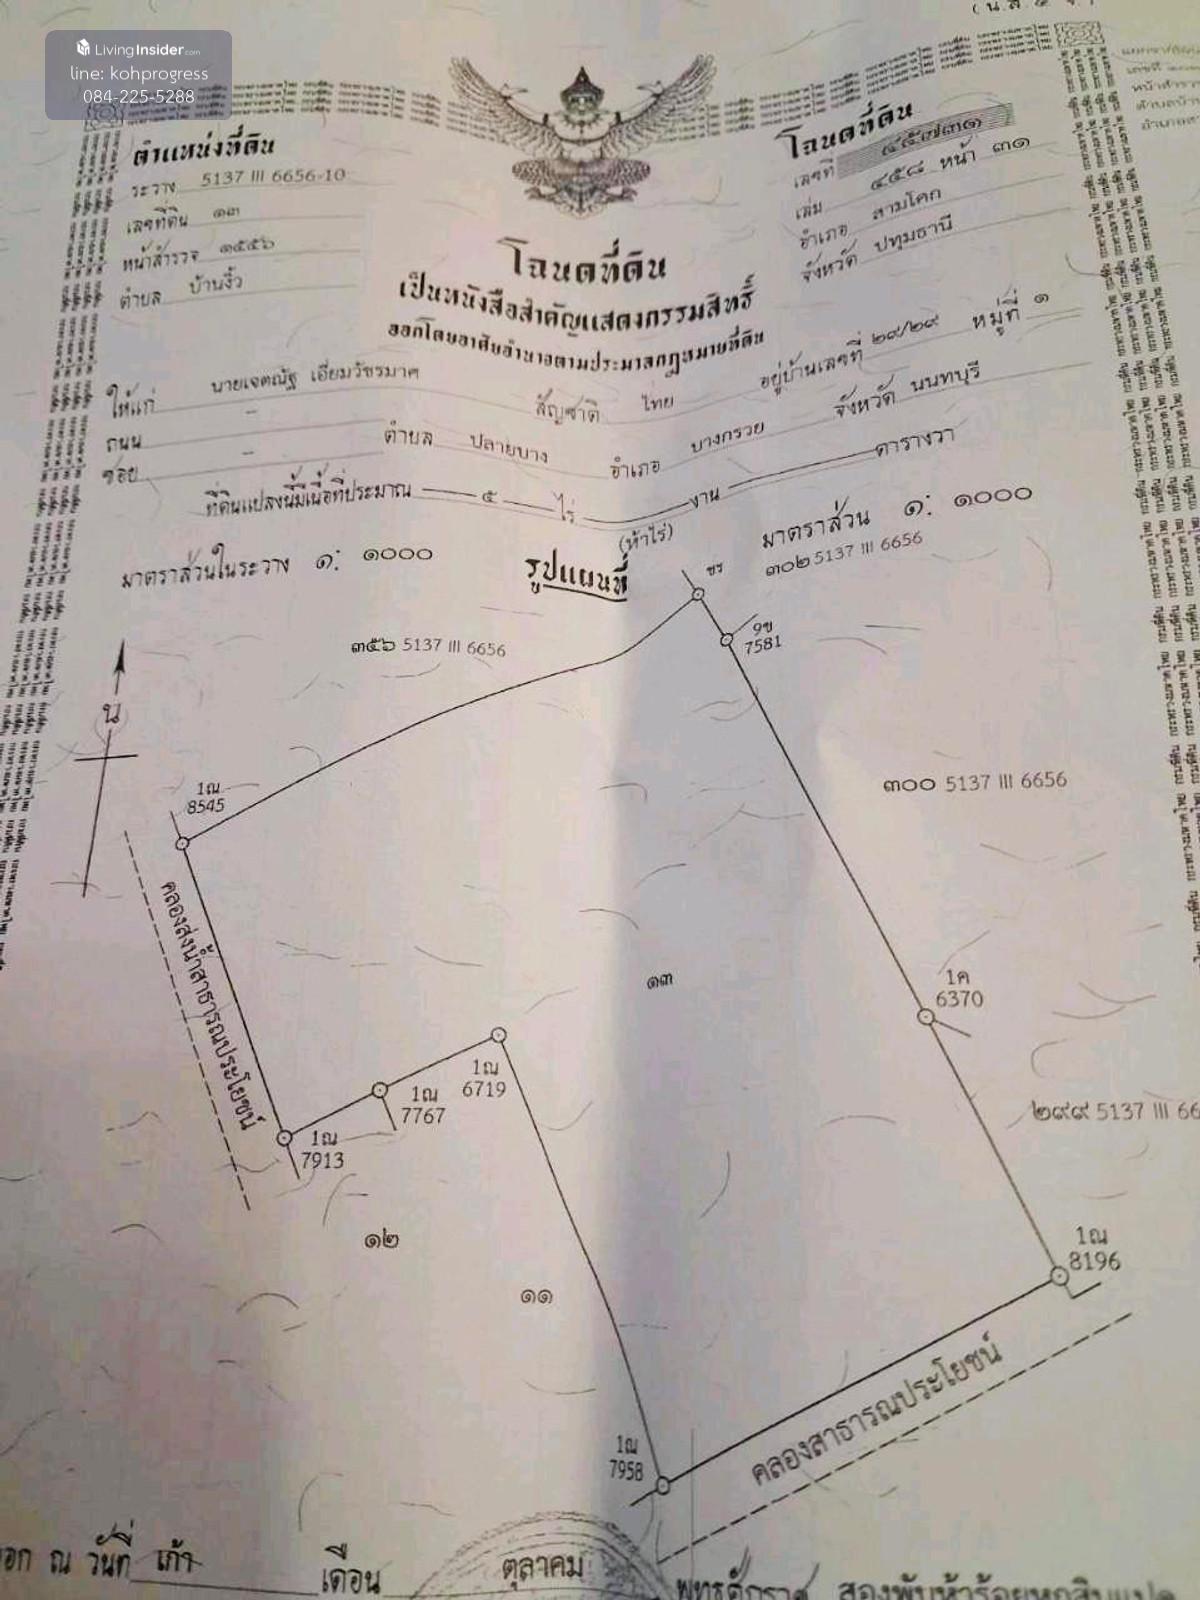 LivingInsider.com
line: kohprogress
084-225-5288
ตำแหน่งที่ดิน
ระวาง 5137 III 6656-10
เลขที่ดิน ๑๓
หน้าสำรวจ ๑๕๕๖
ตำบล บ้านงิ้ว
โฉนดที่ดิน
เลขที่ ๔๕๗๓๑
เล่ม ๔๕๘ หน้า ๓๑
อำเภอ สามโคก
จังหวัด ปทุมธานี
โฉนดที่ดิน
เป็นหนังสือสำคัญแสดงกรรมสิทธิ์
ออกโดยอาศัยอำนาจตามประมวลกฎหมายที่ดิน
ให้แก่ นายเจตณัฐ เอี่ยมวัชรมาศ สัญชาติ ไทย อยู่บ้านเลขที่ ๒๙/๒๙ หมู่ที่ ๑
ถนน -
ซอย - ตำบล ปลายบาง อำเภอ บางกรวย จังหวัด นนทบุรี
ที่ดินแปลงนี้มีเนื้อที่ประมาณ ๕ ไร่ งาน ตารางวา
(ห้าไร่)
มาตราส่วนในระวาง ๑: ๑๐๐๐
รูปแผนที่
มาตราส่วน ๑: ๑๐๐๐
๓๐๒ 5137 III 6656
ชร
๓๕๖ 5137 III 6656
9ข
7581
น
1ณ
8545
๓๐๐ 5137 III 6656
คลองส่งน้ำสาธารณประโยชน์
๑๓
1ค
6370
1ณ
6719
1ณ
7767
1ณ
7913
๒๙๙ 5137 III 66
๑๒
๑๑
1ณ
8196
คลองสาธารณประโยชน์
1ณ
7958
ณ วันที่ เก้า เดือน ตุลาคม พุทธศักราช สองพันห้าร้อยหกสิบแปด